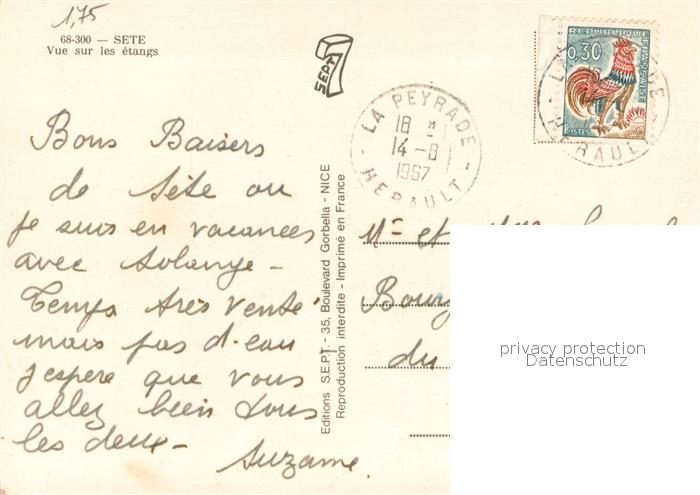 1,75
68-300 — SETE
Vue sur les étangs
SEPT
LA PEYRADE
18 H
14-8
1967
HERAULT
REPUBLIQUE FRANÇAISE
0,30
POSTES
HERAULT
Bons Baisers
de Sète ou
je suis en vacances
avec Solange -
Temps très venté
mais pas d'eau
j'espère que vous
allez bien tous
les deux -
Suzanne
Editions S.E.P.T. - 35, Boulevard Gorbella - NICE
Reproduction interdite - Imprimé en France
Mr et
du
privacy protection
Datenschutz